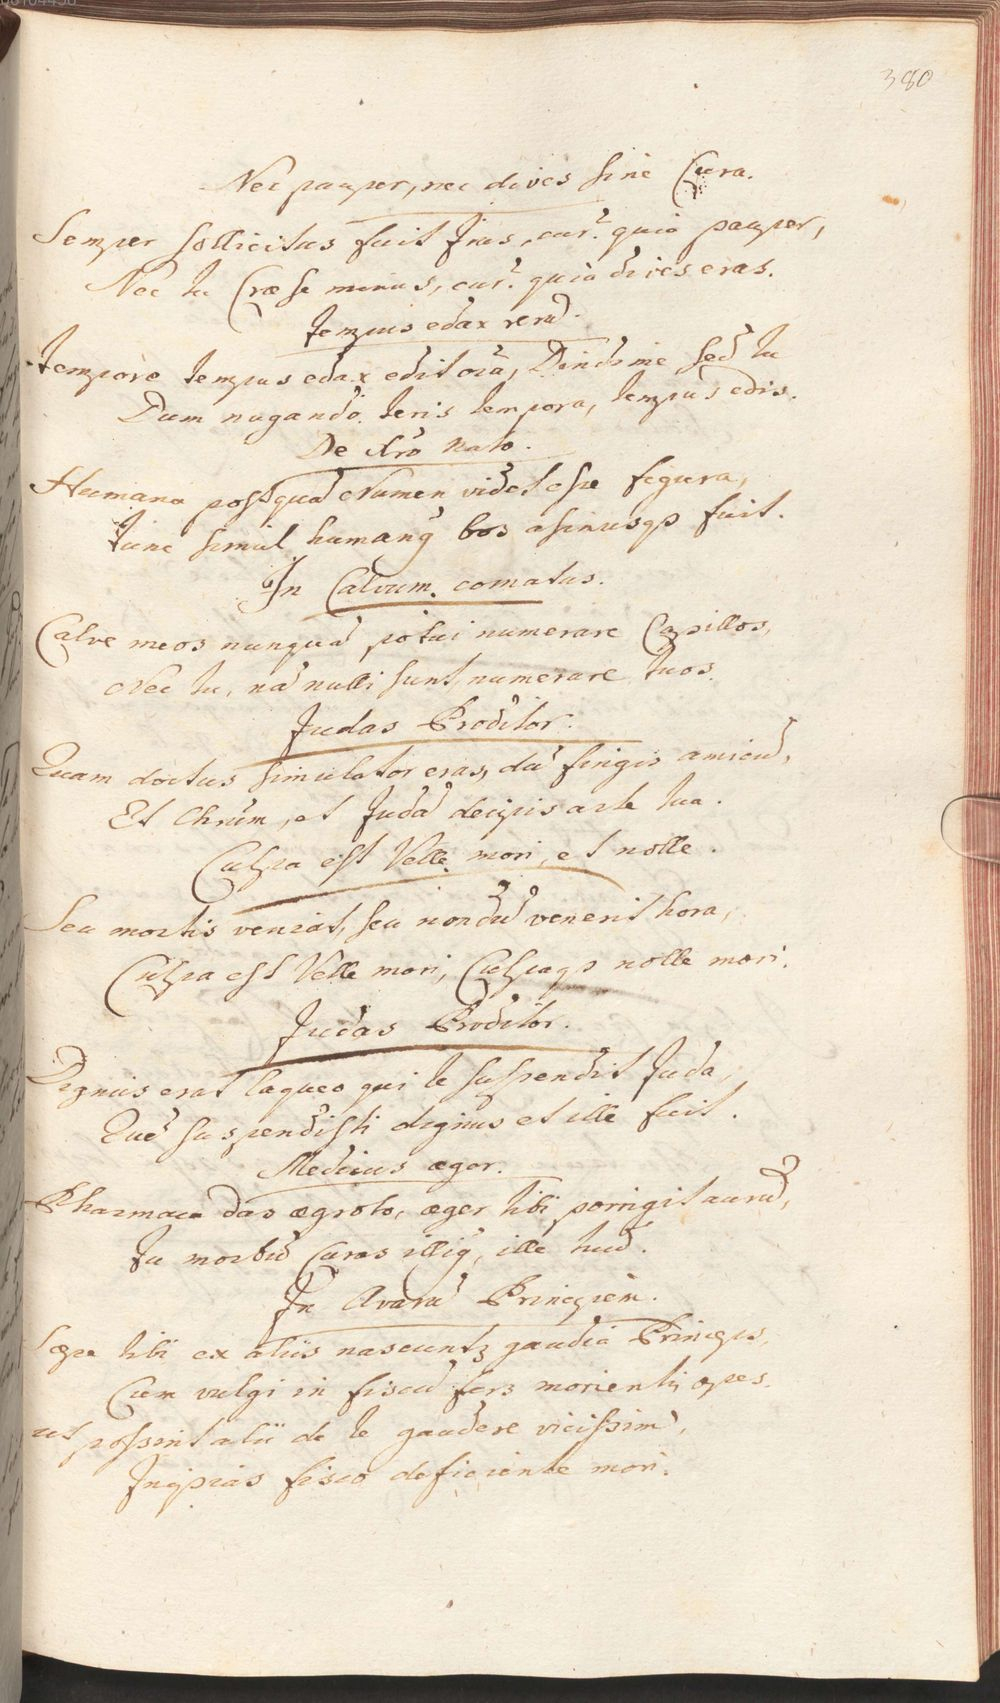 380
Nec pauper, nec dives sine Cura.
Semper sollicitus fuit Irus, cur? quia pauper,
Nec tu Cræse minus, cur? quia dives eras.
Tempus edax rerū.
Tempore tempus edax edit oīa, Dindime sed tu
Dum nugando teris tempora, tempus edis.
De Xrō nato.
Humana postquā Numen videt esse figura,
Tunc simul humang bos asinusqs fuit.
In Calvum comatus.
Calve meos nunquā potui numerare Capillos,
Nec tu, nā nulli sunt, numerare tuos.
Judas Proditor.
Quam doctus simulator eras, dū fingis amicū,
Et Chrūm, et Judā decipis arte tua.
Culpa est Velle mori, et nolle.
Seu mortis veniat, seu nondū venerit hora,
Culpa est Velle mori, Culpaqs nolle mori.
Judas Proditor.
Dignus erat laqueo qui te suspendit Juda,
Quē suspendisti dignus et ille fuit.
Medicus æger.
Pharmaca das ægroto, æger tibi porrigit aurū,
Tu morbū Curas illig, ille tuū.
In Avarū Principem.
Sæpe tibi ex aliis nascuntz gaudia Princeps,
Cum vulgi in fiscū fers morientis opes.
ut possint alii de te gaudere vicissim,
Incipias fisco deficiente mori.